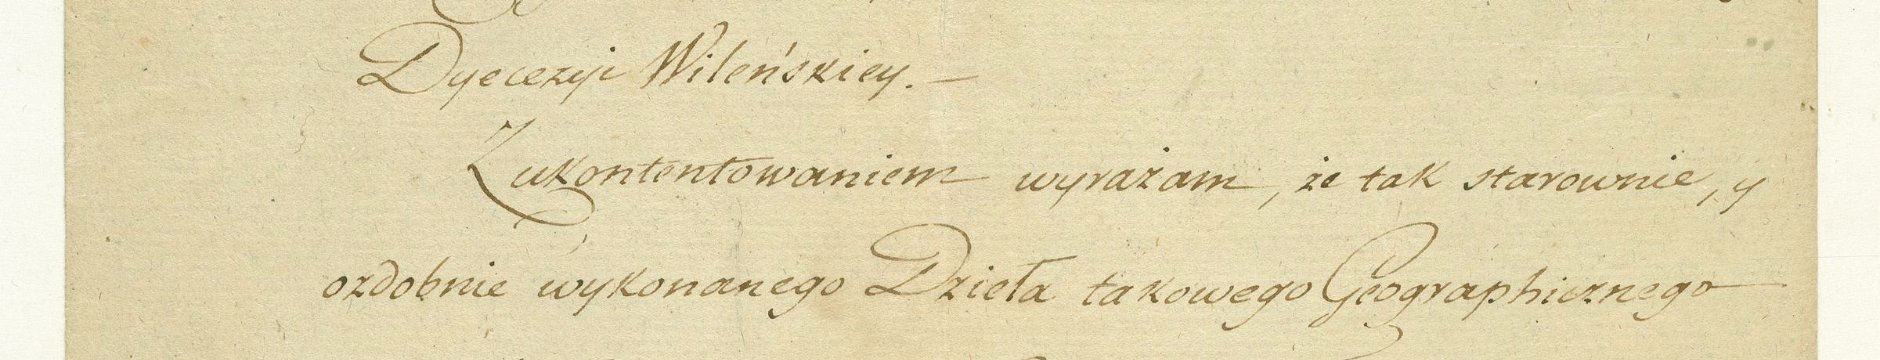 Dyecezyi Wileńskiey. —
Z ukontentowaniem wyrażam, że tak starownie, y
ozdobnie wykonanego Dzieła takowego Geographicznego